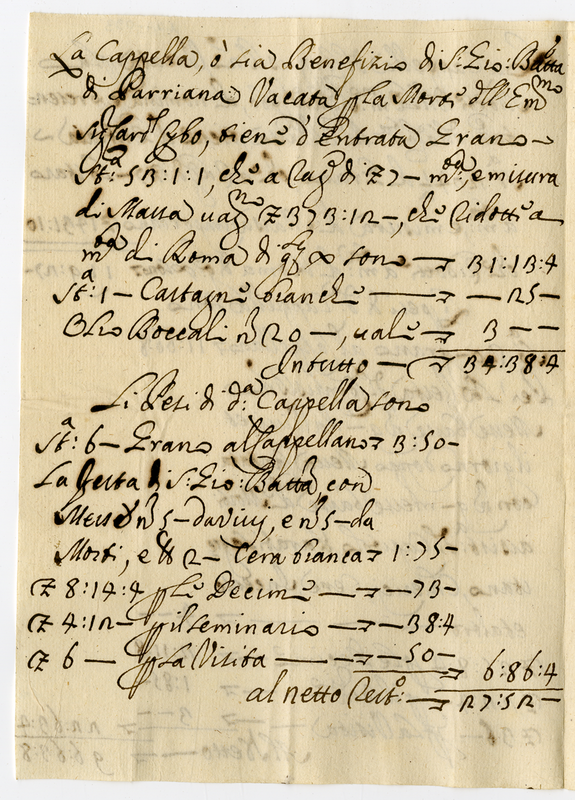 La Cappella, ò sia Benefizio di S: Gio: Batta
di Parriana Vacata p la Morte dll' Em.mo
Sig: Card.l Cybo, tiene d'Entrata Grano
St.a: 53:1:1, che a rag.e di Z 7 — m.ta, e misura
di Massa vag.no Z 373:12 —, che ridotti a
m.ta di Roma di sono — 31:13:4
St.a: 1 — Castagne bianche — — 25 —
Olio Boccali n.o 20 —, vale 3 — —
In tutto — 34:38:4
Li Pesi di d.a Cappella sono
St.a: 6 — Grano al Cappellano 3:50 —
La festa di S: Gio: Batta, con
Messe n.o 5 — da vivi, e n.o 5 — da
Morti, e 2 — Cera bianca 1:75 —
Z 8:14:4 p le Decime — — 73 —
Z 4:12 — p il seminario — — 38:4
Z 6 — p la Visita — — 50 — 6:86:4
al netto rest.o: — 27:52 —